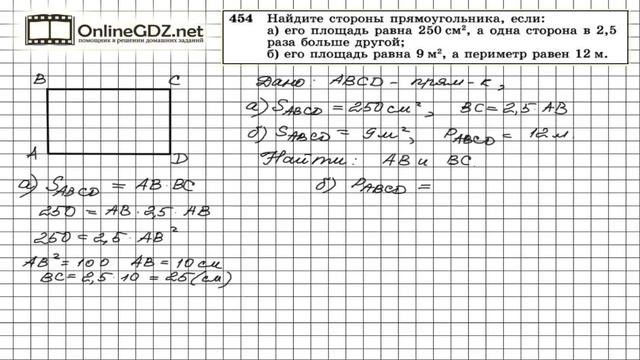 OnlineGDZ.net
помощник в решении домашних заданий
454 Найдите стороны прямоугольника, если:
а) его площадь равна 250 см², а одна сторона в 2,5
раза больше другой;
б) его площадь равна 9 м², а периметр равен 12 м.
B C
A D
Дано: ABCD – прям-к,
а) S_ABCD = 250 см², BC = 2,5·AB
б) S_ABCD = 9 м², P_ABCD = 12 м.
Найти: AB и BC
а) S_ABCD = AB·BC
250 = AB·2,5·AB
250 = 2,5·AB²
AB² = 100 AB = 10 см
BC = 2,5·10 = 25 (см)
б) P_ABCD =